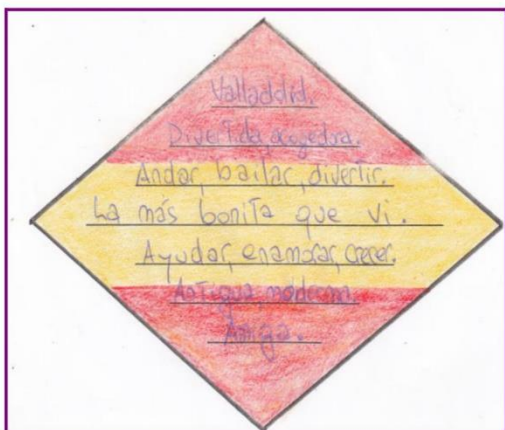 Valladolid.
Divertida, acogedora.
Andar, bailar, divertir.
La más bonita que vi.
Ayudar, enamorar, crecer.
Antigua, moderna.
Amiga.